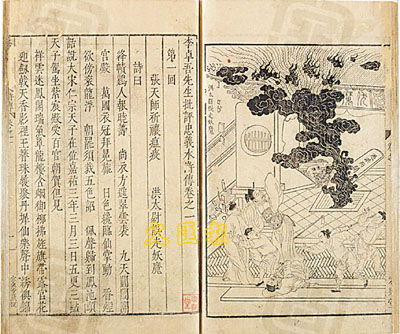 李卓吾先生批評忠義水滸傳卷之一
第一回
張天師祈禳瘟疫 洪太尉誤走妖魔
詩曰
絳幘雞人報曉籌 尚衣方進翠雲裘 九天閶闔開
宮殿 萬國衣冠拜冕旒 日色纔臨仙掌動 香烟
欲傍袞龍浮 朝罷須裁五色詔 佩聲歸到鳳池頭
話說大宋仁宗天子在位嘉祐三年三月三日五更三點
天子駕坐紫宸殿受百官朝賀但見
祥雲迷鳳閣瑞氣罩龍樓含烟御柳拂旌旗帶露宮花
迎劒戟天香影裡玉簪珠履聚丹墀仙樂聲中綉襖錦